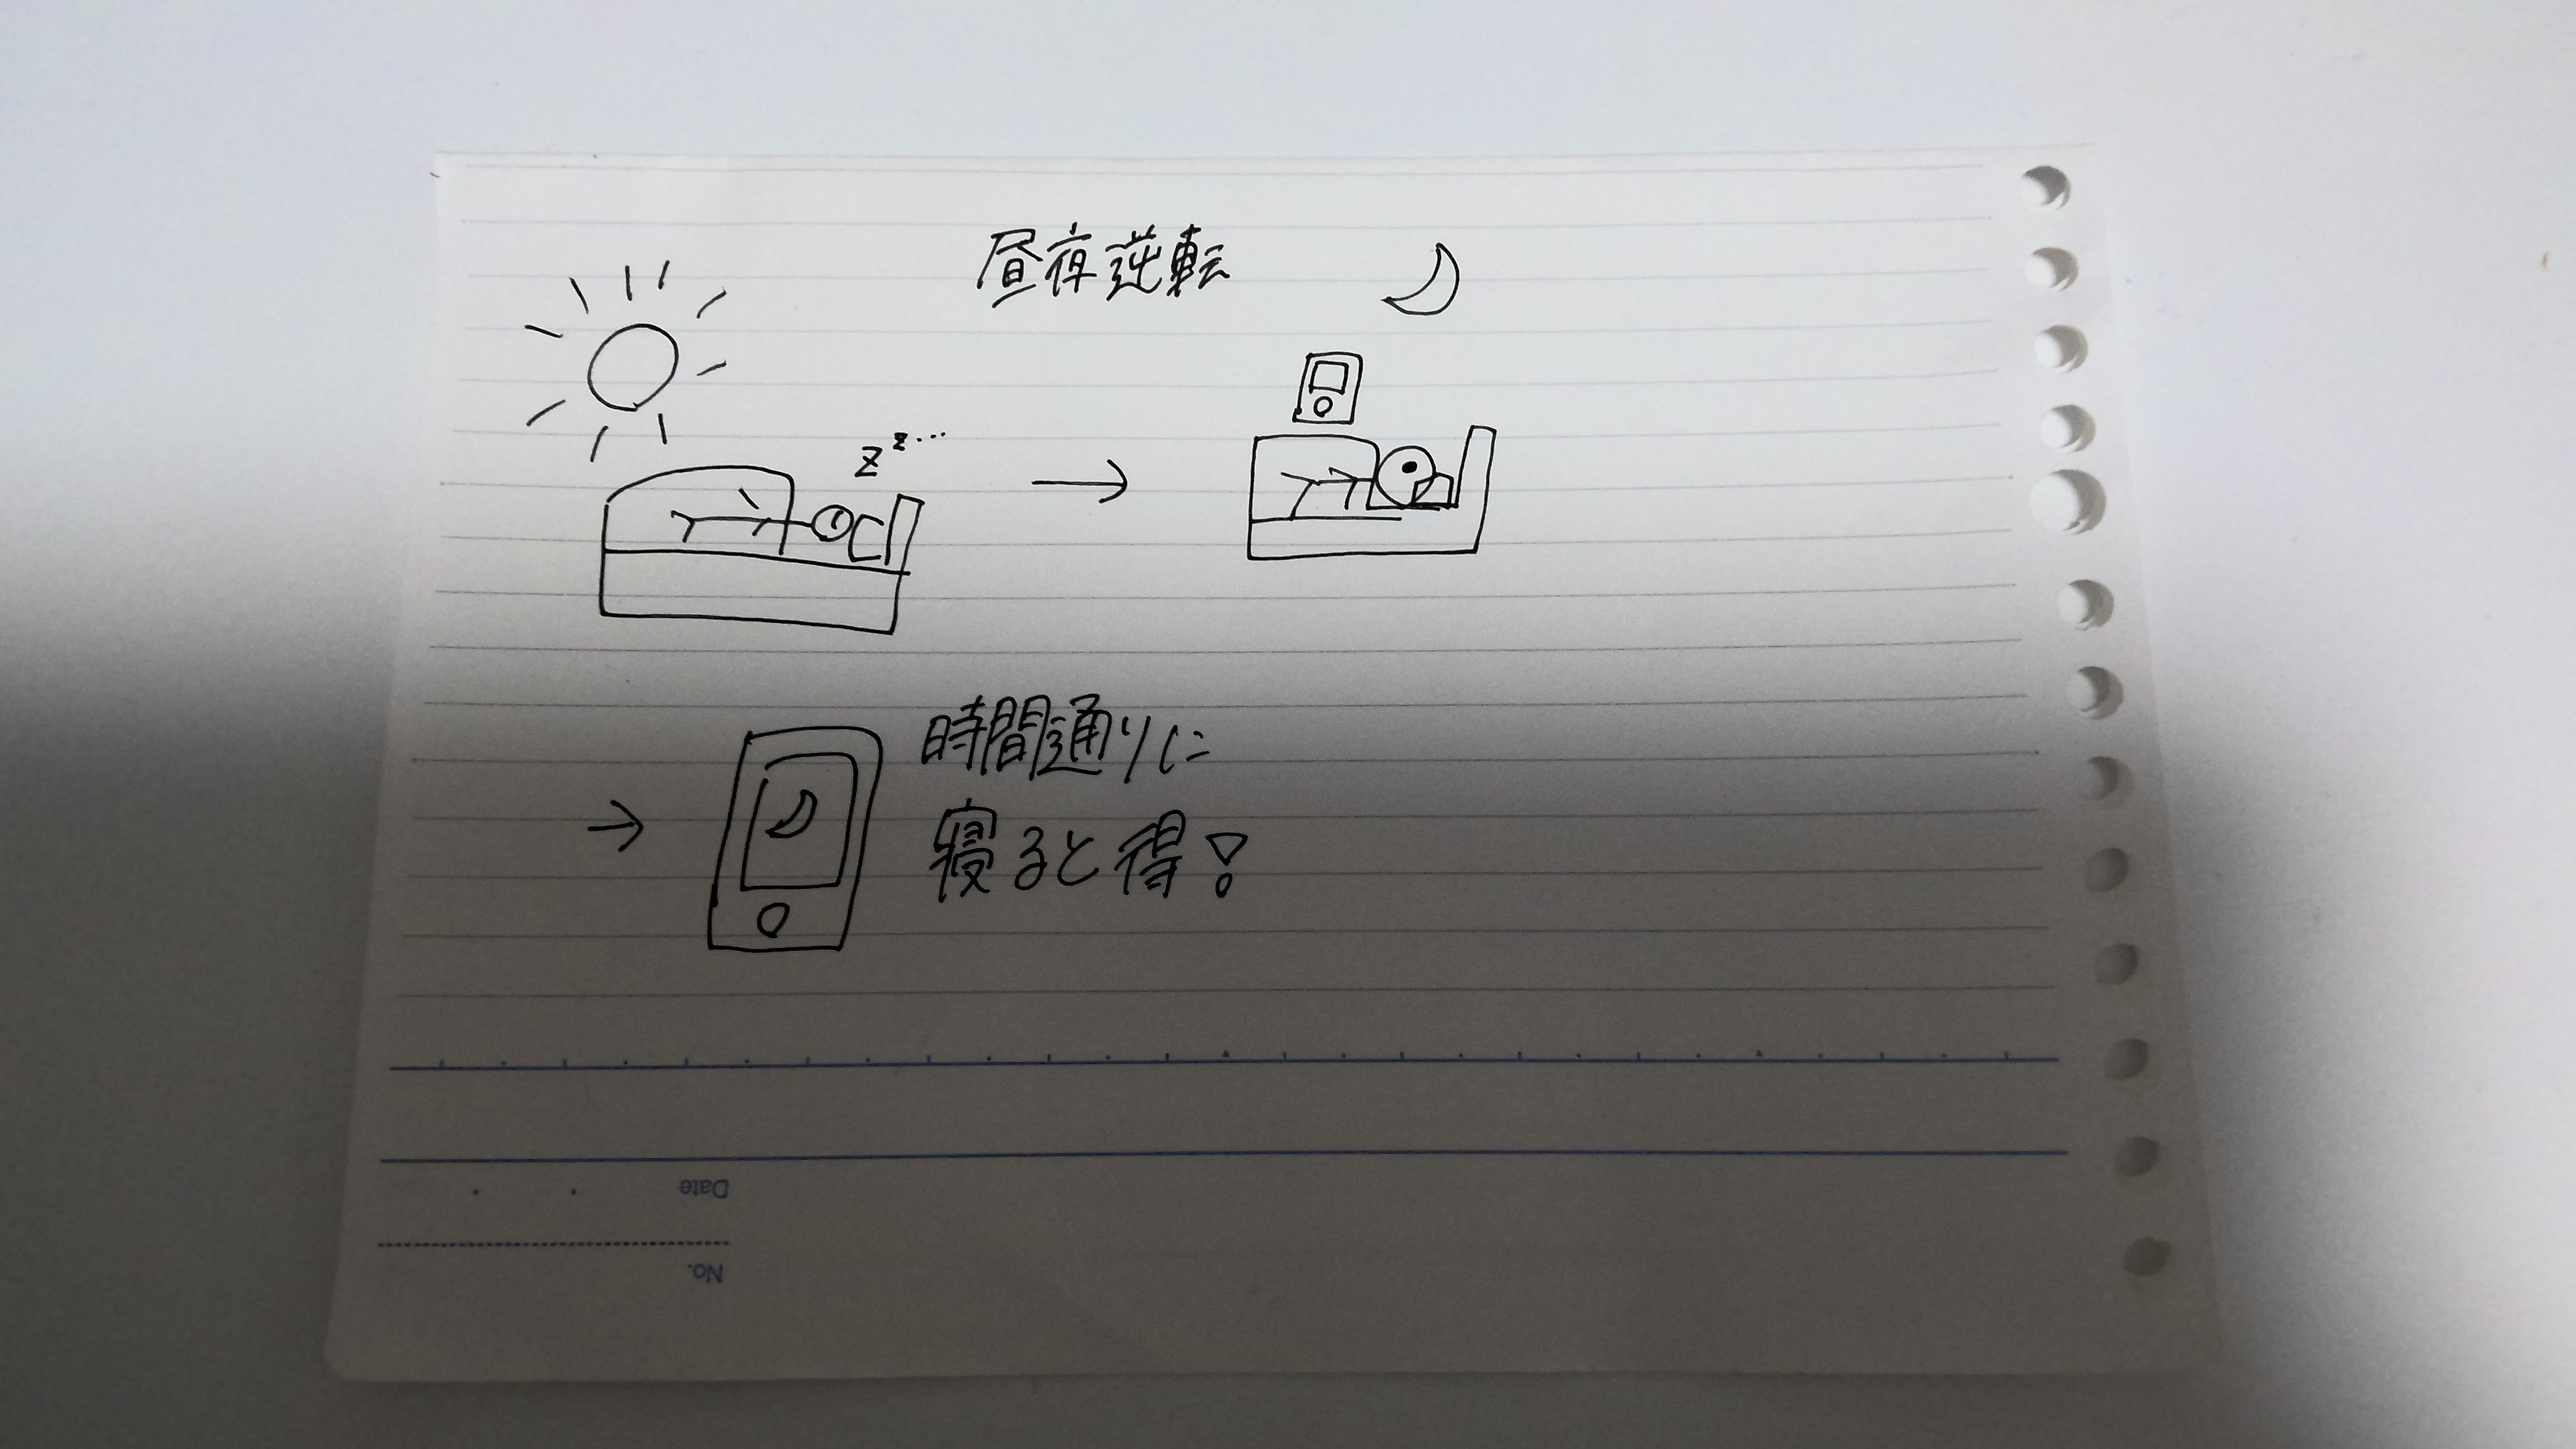 昼夜逆転
zz...
時間通りに
寝ると得!
Date
No.